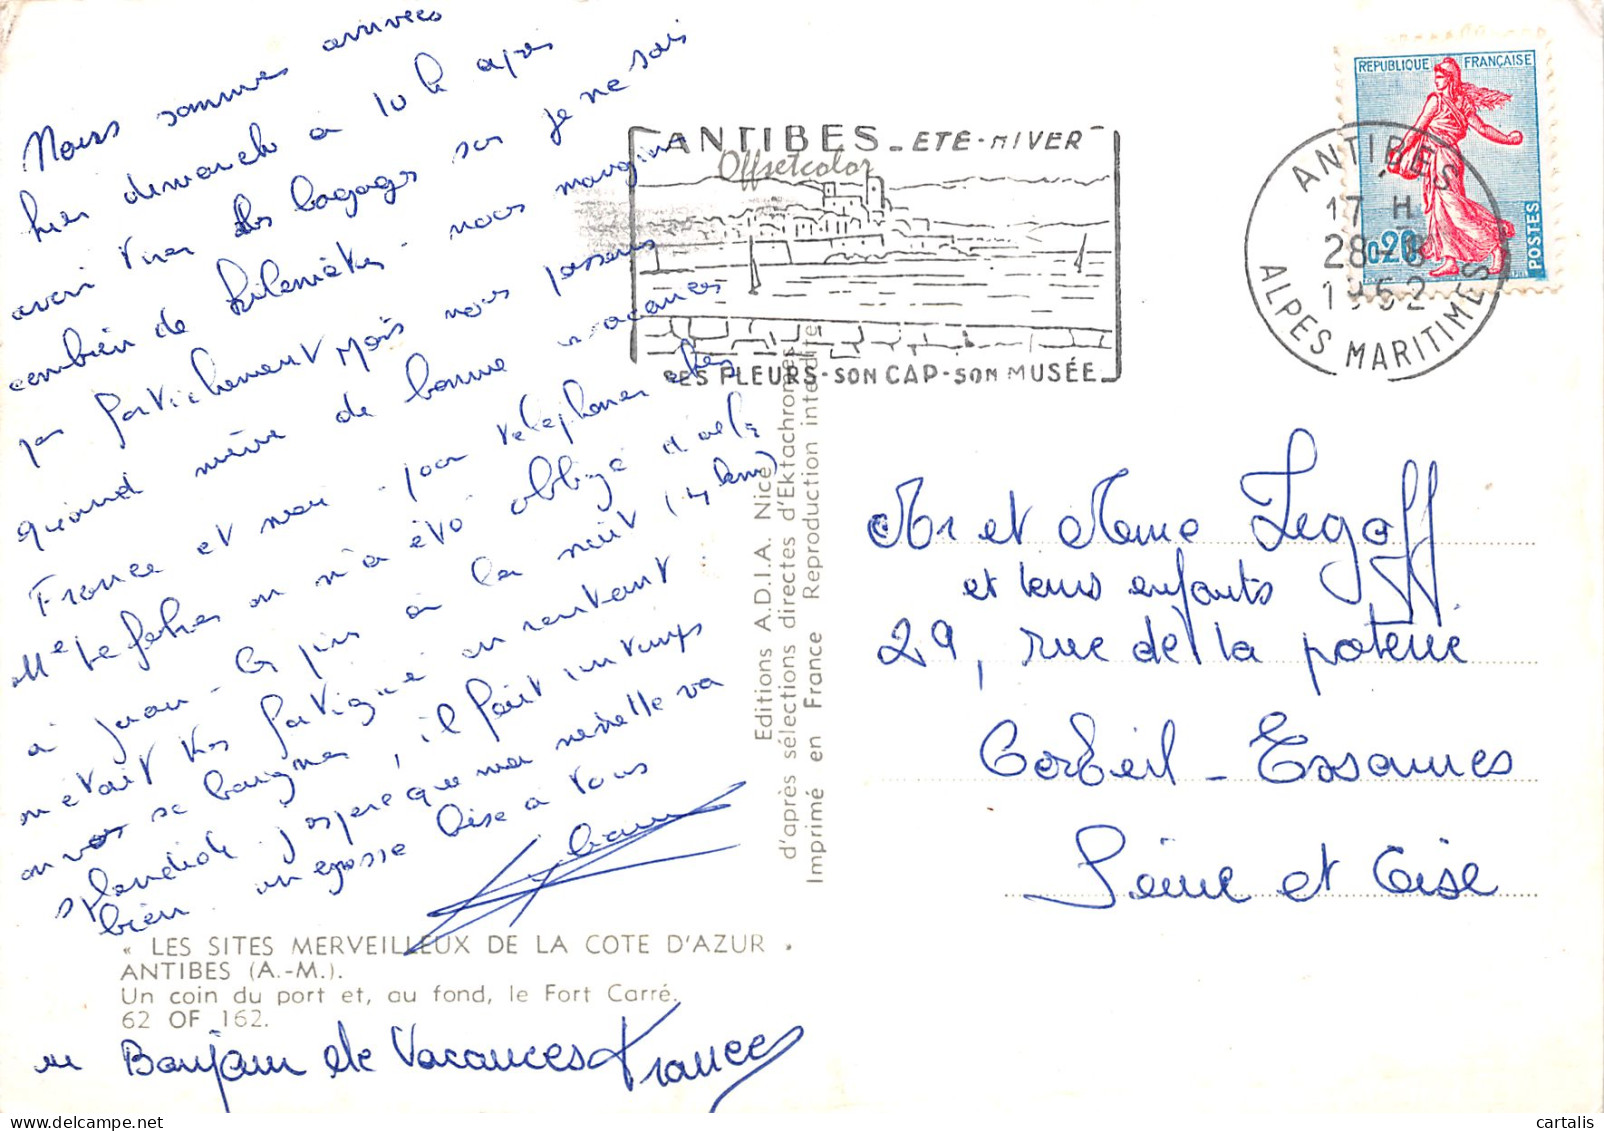 Nous sommes arrivées
hier dimanche à 10 h après
avoir tirer des bagages sur je ne sais
combien de kilomètres - nous mangions
pas fortichement Mais nous passons
quand même de bonne vacances
France et moi - pour telephoner chez
Mme Le on n'a été obligé d'aller
à Juan - à la nuit (4 km)
on était très fatigué en rentant
on vas se baigner, il fait un temps
splendide j'espere que
va
bien un grosse bise à tous
« LES SITES MERVEILLEUX DE LA COTE D'AZUR »
ANTIBES (A.-M.).
Un coin du port et, au fond, le Fort Carré.
62 OF 162.
Bonjour de Vacances France
Editions A.D.I.A. Nice
d'après sélections directes d'Ektachromes
Imprimé en France Reproduction interdite
ANTIBES - ETE-HIVER
Offsetcolor
SES FLEURS-SON CAP-SON MUSÉE
REPUBLIQUE FRANÇAISE
0,20
POSTES
ANTIBES
17 H
28-8
1962
ALPES MARITIMES
Mr et Mme Legoff
et leurs enfants
29, rue de la poterie
Corbeil - Essonnes
Seine et Oise
cartalis
delcampe.net